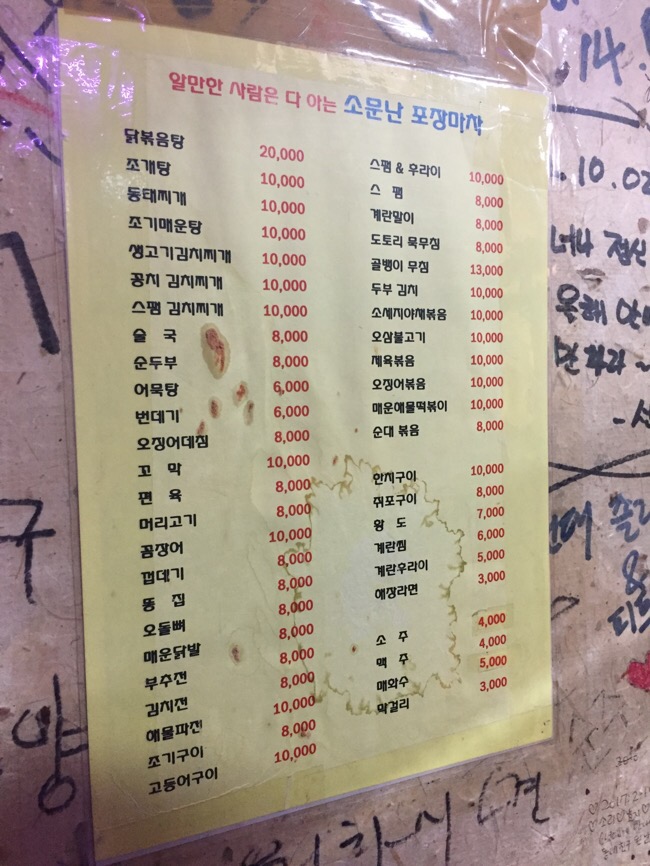 알만한 사람은 다 아는 소문난 포장마차
닭볶음탕 20,000
조개탕 10,000
동태찌개 10,000
조기매운탕 10,000
생고기김치찌개 10,000
꽁치 김치찌개 10,000
스팸 김치찌개 10,000
술 국 8,000
순두부 8,000
어묵탕 6,000
번데기 6,000
오징어데침 8,000
꼬 막 10,000
편 육 8,000
머리고기 8,000
곰장어 10,000
껍데기 8,000
똥 집 8,000
오돌뼈 8,000
매운닭발 8,000
부추전 8,000
김치전 8,000
해물파전 10,000
조기구이 8,000
고등어구이 10,000
스팸 & 후라이 10,000
스 팸 8,000
계란말이 8,000
도토리 묵무침 8,000
골뱅이 무침 13,000
두부 김치 10,000
소세지야채볶음 10,000
오삼불고기 10,000
제육볶음 10,000
오징어볶음 10,000
매운해물떡볶이 10,000
순대 볶음 8,000
한치구이 10,000
쥐포구이 8,000
황 도 7,000
계란찜 6,000
계란후라이 5,000
해장라면 3,000
소 주 4,000
맥 주 4,000
매화수 5,000
막걸리 3,000
.14.
.10.02
너나
구
양